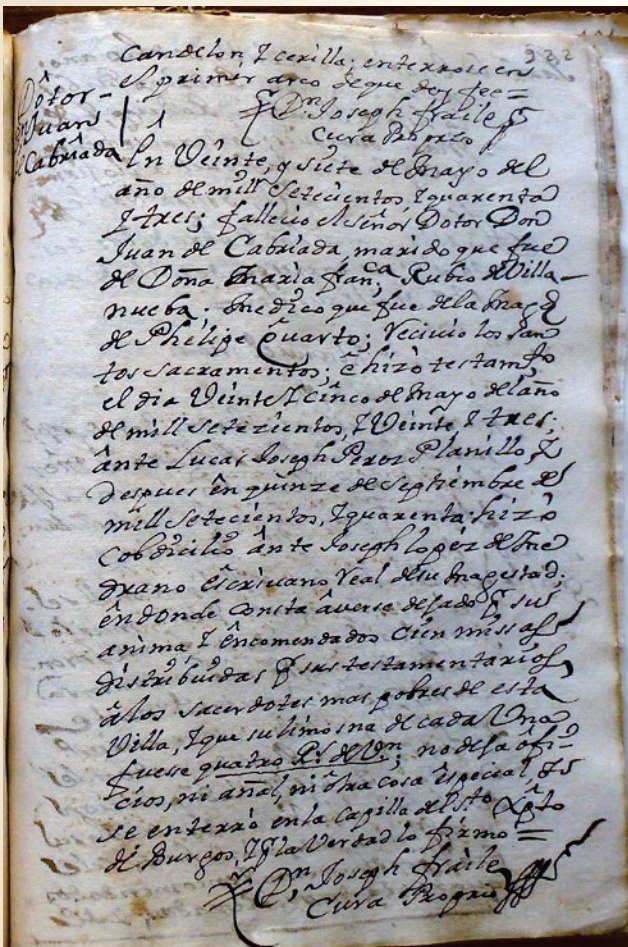 322
Candelon, y cerilla; enterrose en
el primer arco de que doy fee =
Dn. Joseph fraile
Cura Proprio
Dotor
Dn Juan
de Cabriada
En Veinte, y siete de Mayo del
año de mill Setecientos, y quarenta
y tres; fallecio el señor Dotor Don
Juan de Cabriada, marido que fue
de Doña Maria franca, Rubio de Villa-
nueba; Medico que fue de la Magd
de Phelipe Quarto; Recivio los san
tos sacramentos; e hizo testamto
el dia Veinte y cinco de Mayo del año
de mill setezientos, y Veinte, y tres;
ante Lucas Joseph Perez Planillo, y
despues en quinze de Septiembre de
mill setecientos, y quarenta hizo
Cobdicilio ante Joseph lopez de Me
drano escrivano Real de su Magestad;
en donde consta averse dejado pr su
anima, y encomendados cien missas
distribuidas pr sus testamentarios
a los sacerdotes mas pobres de esta
Villa, y que su limosna de cada Una
fuesse quatro Rs. de Vn; no deja ofi-
cios, ni añal, ni otra cosa especial,
se enterrò en la capilla del Sto Xpto
de Burgos, y pr la Verdad lo firmo =
Dn, Joseph fraile
Cura Proprio